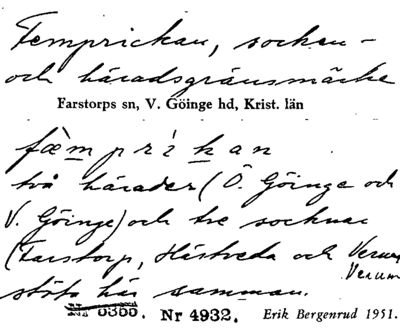 Femprickan, socken-
och häradsgränsmärke
Farstorps sn, V. Göinge hd, Krist. län
fæ̀mprìkan
två härader (Ö. Göinge och
V. Göinge) och tre socknar
(Farstorp, Hästveda och Verum
Verum
stöta här samman.
Nr 0366. Nr 4932. Erik Bergenrud 1951.